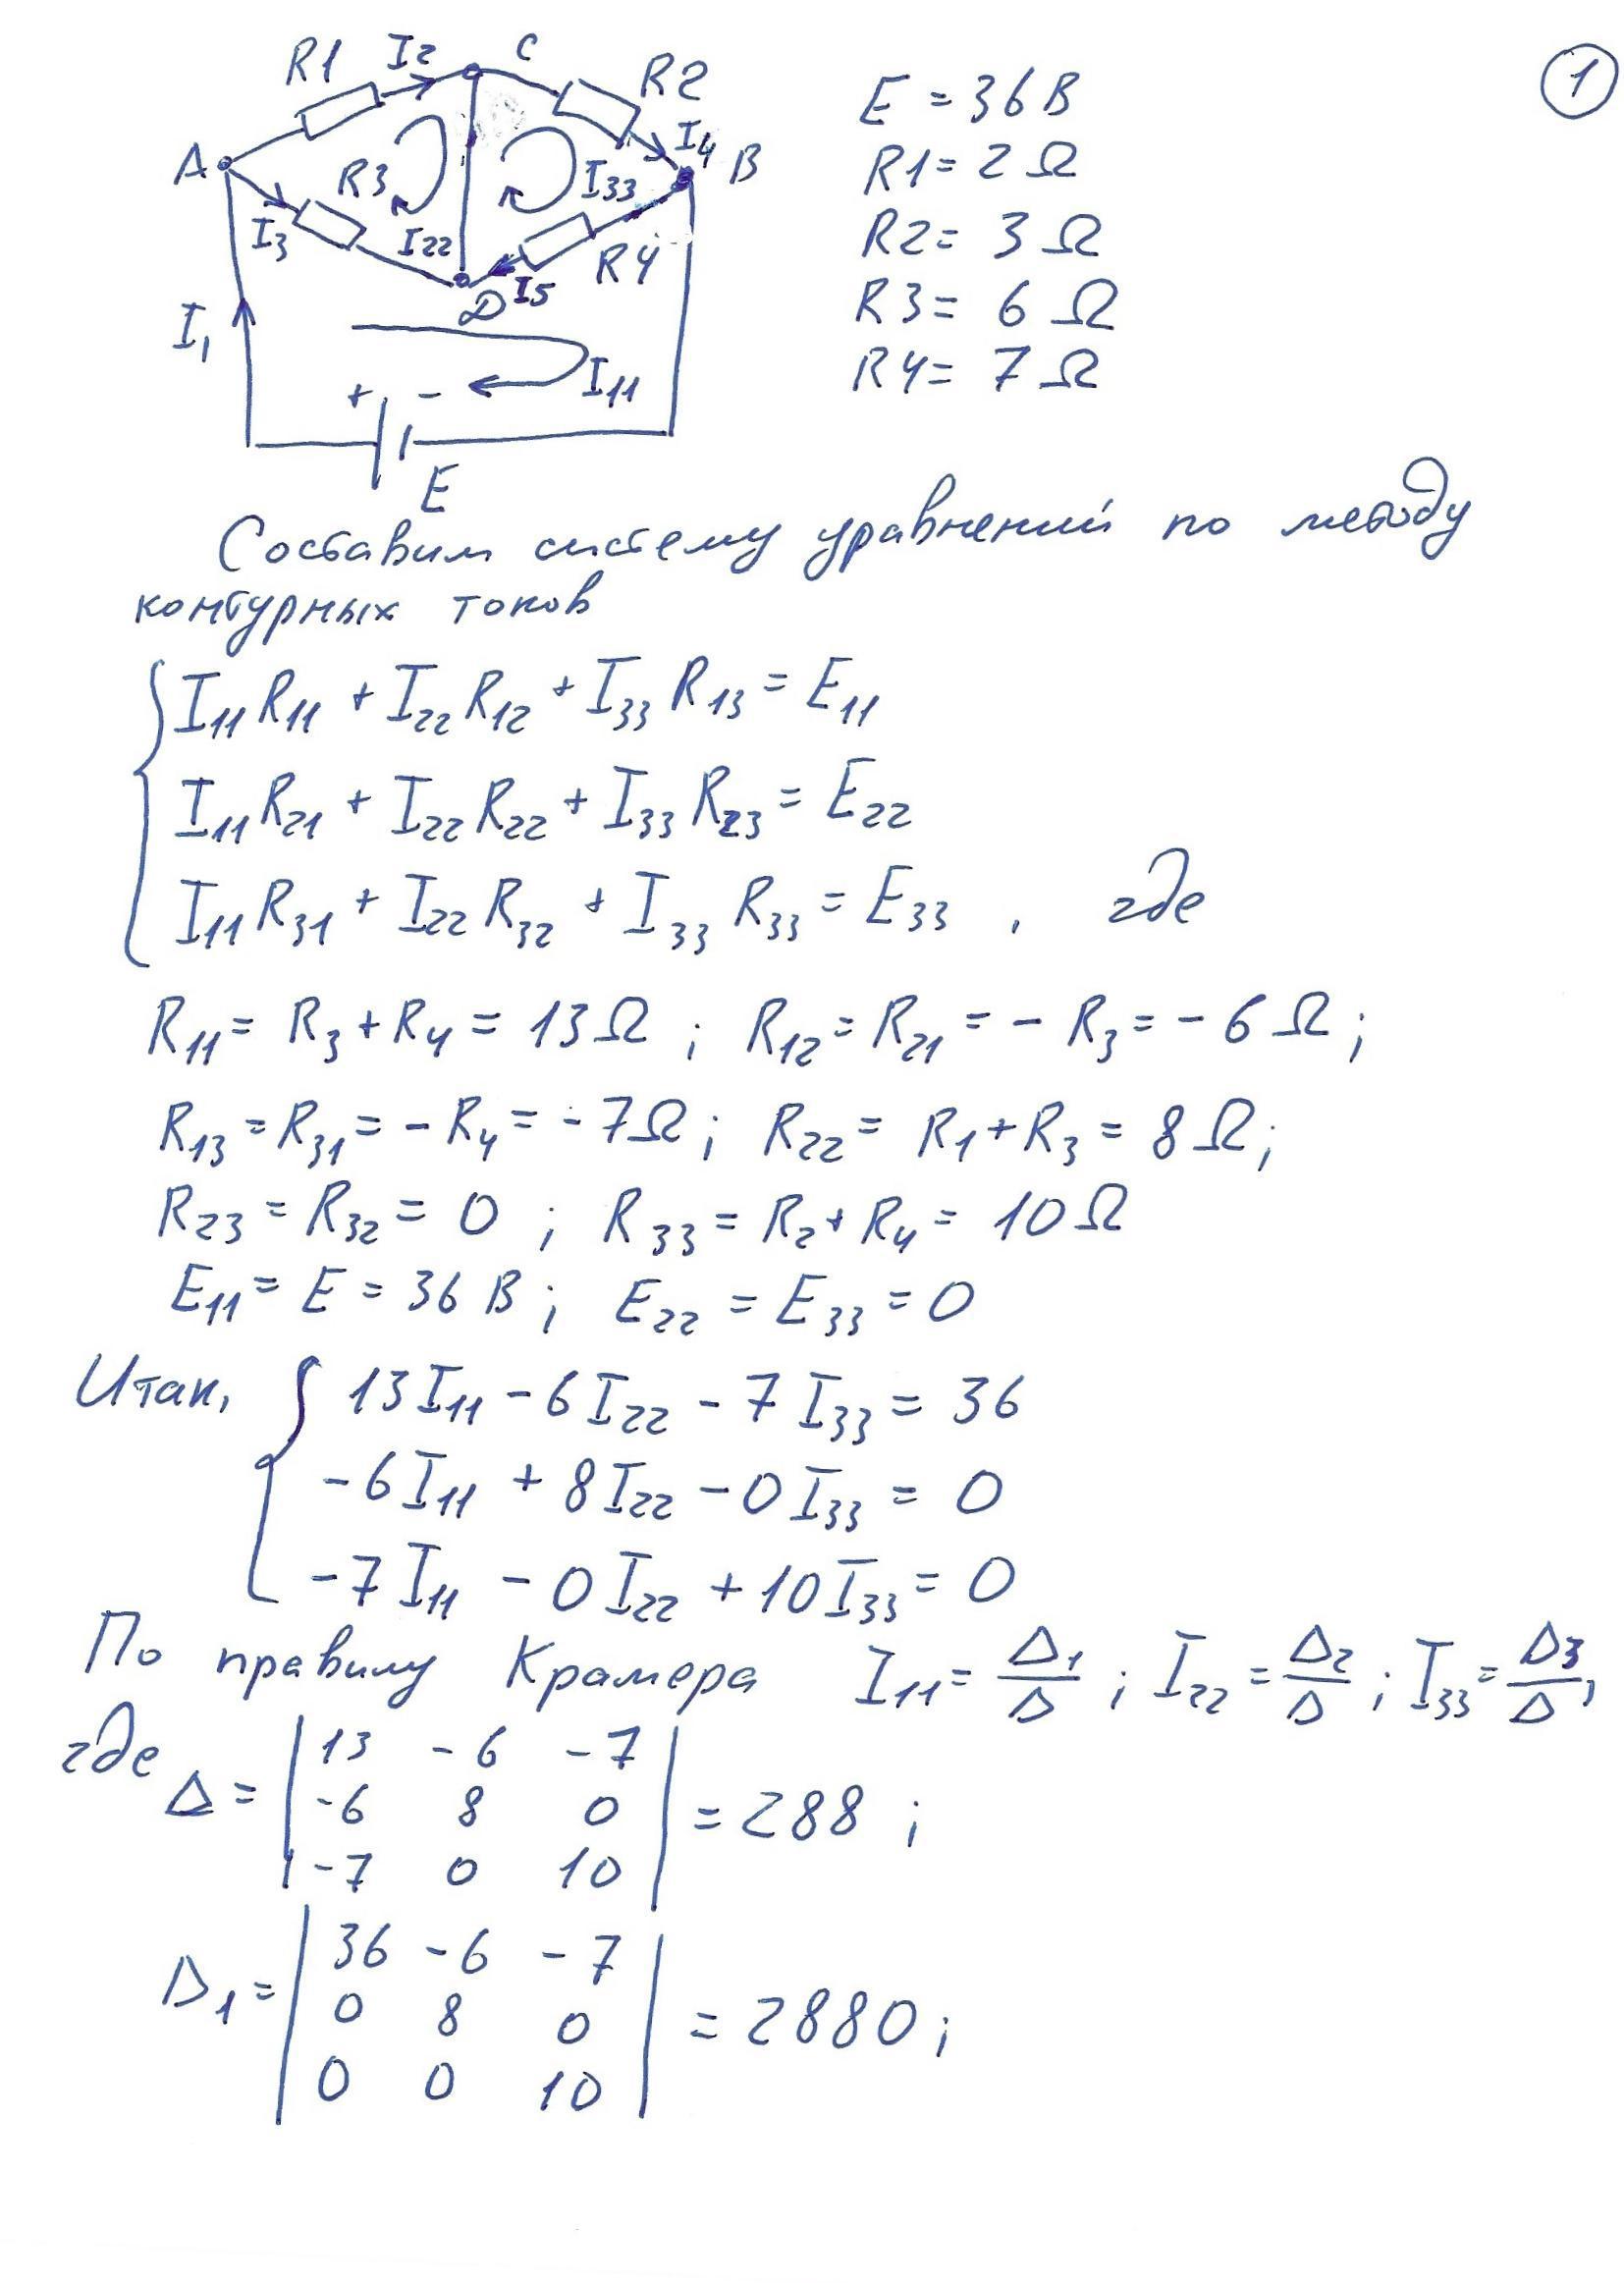 1
R1 I2 C R2
I4
A B
R3 I33
I3 I22 R4
D I5
I1
I11
+ -
E
E = 36 В
R1 = 2 Ω
R2 = 3 Ω
R3 = 6 Ω
R4 = 7 Ω
Составим систему уравнений по методу
контурных токов
I11 R11 + I22 R12 + I33 R13 = E11
I11 R21 + I22 R22 + I33 R23 = E22
I11 R31 + I22 R32 + I33 R33 = E33 , где
R11 = R3 + R4 = 13 Ω ; R12 = R21 = - R3 = - 6 Ω ;
R13 = R31 = - R4 = - 7 Ω ; R22 = R1 + R3 = 8 Ω ;
R23 = R32 = 0 ; R33 = R2 + R4 = 10 Ω
E11 = E = 36 В ; E22 = E33 = 0
Итак, 13 I11 - 6 I22 - 7 I33 = 36
- 6 I11 + 8 I22 - 0 I33 = 0
- 7 I11 - 0 I22 + 10 I33 = 0
По правилу Крамера I11 = Δ1/Δ ; I22 = Δ2/Δ ; I33 = Δ3/Δ ,
где
13 -6 -7
Δ = -6 8 0 = 288 ;
-7 0 10
36 -6 -7
Δ1 = 0 8 0 = 2880 ;
0 0 10